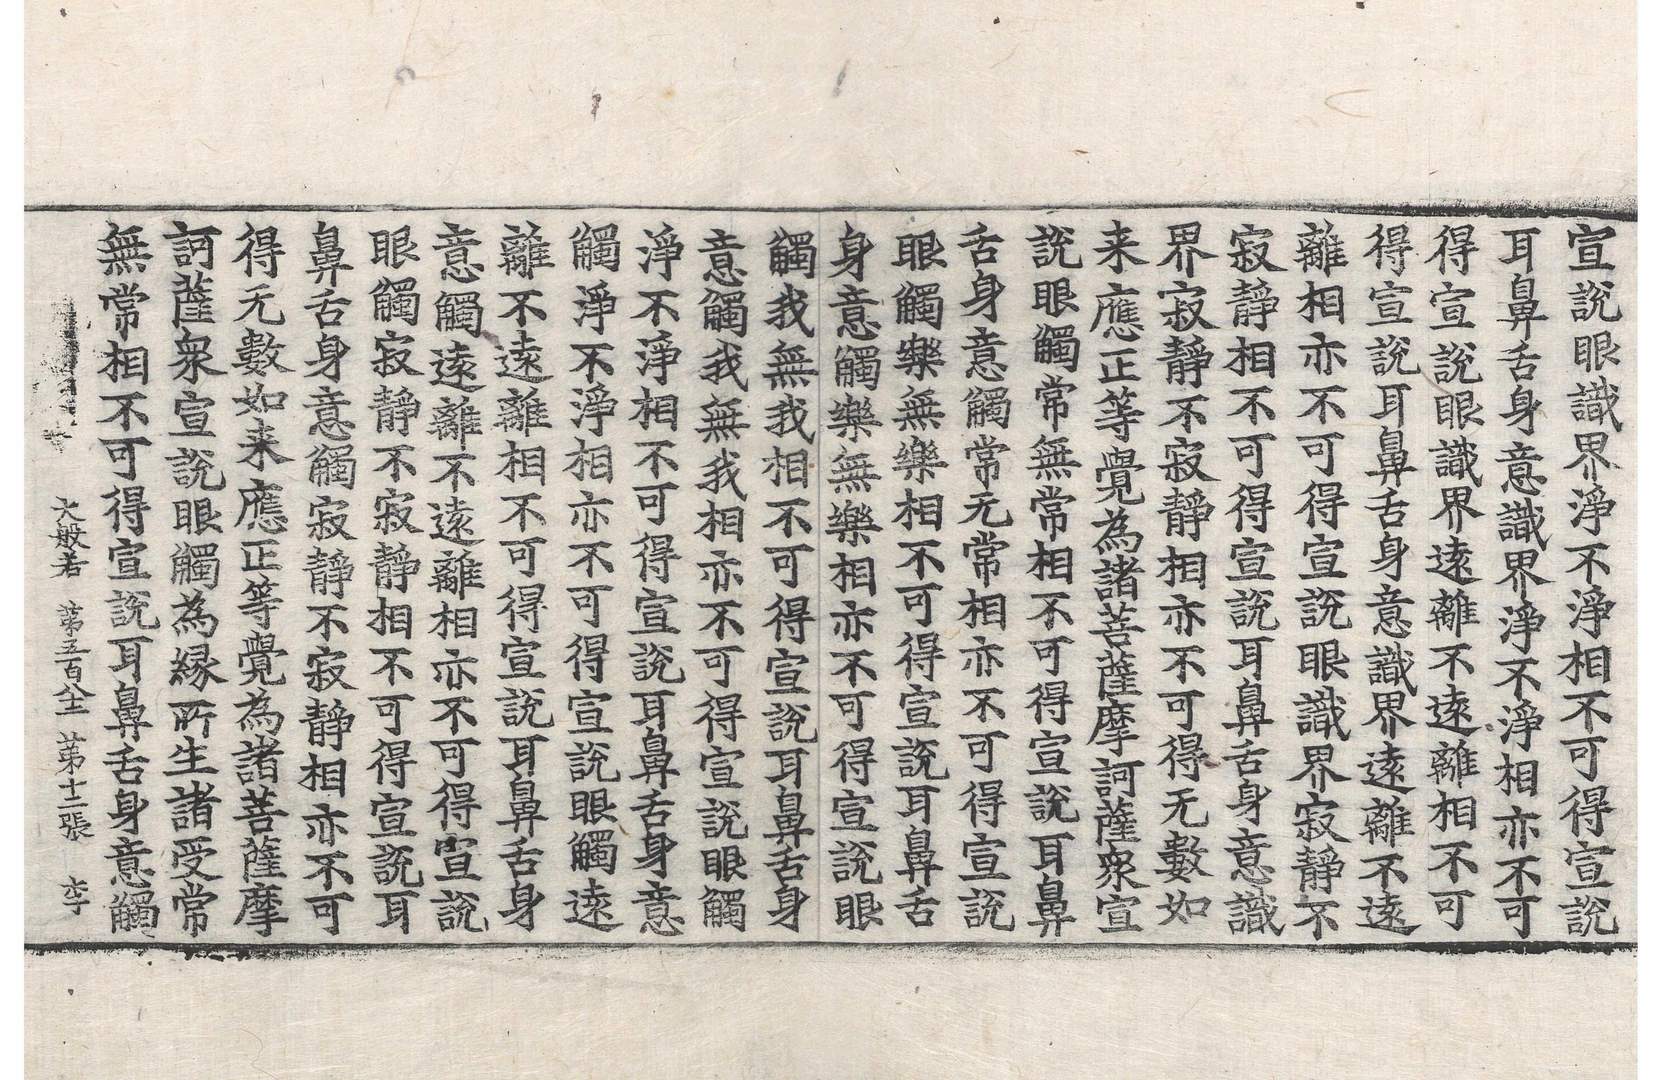 宣說眼識界淨不淨相不可得宣說
耳鼻舌身意識界淨不淨相亦不可
得宣說眼識界遠離不遠離相不可
得宣說耳鼻舌身意識界遠離不遠
離相亦不可得宣說眼識界寂靜不
寂靜相不可得宣說耳鼻舌身意識
界寂靜不寂靜相亦不可得无數如
来應正等覺為諸菩薩摩訶薩衆宣
說眼觸常無常相不可得宣說耳鼻
舌身意觸常无常相亦不可得宣說
眼觸樂無樂相不可得宣說耳鼻舌
身意觸樂無樂相亦不可得宣說眼
觸我無我相不可得宣說耳鼻舌身
意觸我無我相亦不可得宣說眼觸
淨不淨相不可得宣說耳鼻舌身意
觸淨不淨相亦不可得宣說眼觸遠
離不遠離相不可得宣說耳鼻舌身
意觸遠離不遠離相亦不可得宣說
眼觸寂靜不寂靜相不可得宣說耳
鼻舌身意觸寂靜不寂靜相亦不可
得无數如来應正等覺為諸菩薩摩
訶薩衆宣說眼觸為緣所生諸受常
無常相不可得宣說耳鼻舌身意觸
大般若 第五百 第十二張 李